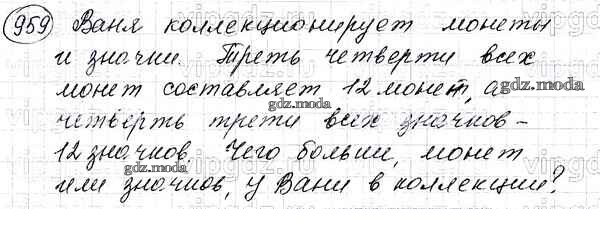 959 Ваня коллекционирует монеты
и значки. Треть четверти всех
монет составляет 12 монет, а
gdz.moda
gdz.moda
четверть трети всех значков -
12 значков. Чего больши, монет
gdz.moda
или значков, у Вани в коллекции?
gdz.moda